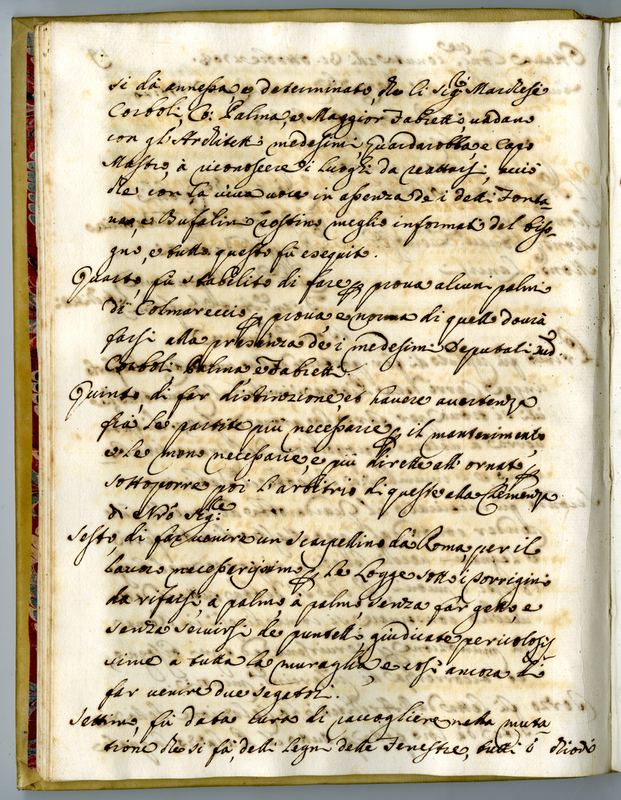 si dà annessa e determinato, che li Sig.ri Marchesi
Corboli, Co: Palma, e Maggior Fabretti, vadano
con gl'Architetti medesimi, Guardarobba, e Capo
Mastro à riconoscere i luoghi da reattarsi, acciò
che con la viva voce in assenza de i detti Fonta
na, e Bufalini restino meglio informati del biso-
gno, e tutto questo fù eseguito.
Quarto, fù stabilito di fare prova alcuni palmi
di Colmareccio, prova e norma di quelli dovrà
farsi alla presenza de i medesimi Deputati sud.i
Corboli Palma e Fabretti.
Quinto, di far distinzione, et havere avertenza
frà le partite più necessarie il mantenimento
e le meno necessarie, e più dirette all'ornato,
sottoporre poi l'arbitrio di queste alla Clemenza
di Nro Sig.re
Sesto, di far venire un Scarpellino dà Roma per il
lavoro necessarijssimo Le Logge sotto i porrigini
da rifarsi à palmo, à palmo senza far getto, e
senza servirsi de puntelli giudicati pericolosis
sime à tutta la muraglia, e così ancora di
far venire due segatori.
Settimo fù data cura di raccogliere nella muta
tione che si fà, delli legni delle Fenestre, tutti i chiodi